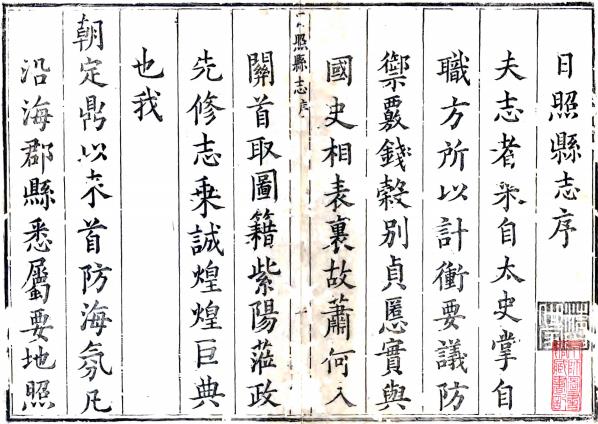 日照縣志序
夫志者采自太史掌自
職方所以計衝要議防
禦覈錢穀別貞慝實與
國史相表裏故蕭何入
日照縣志序
關首取圖籍紫陽蒞政
先修志乘誠煌煌巨典
也我
朝定鼎以來首防海氛凡
沿海郡縣悉屬要地照